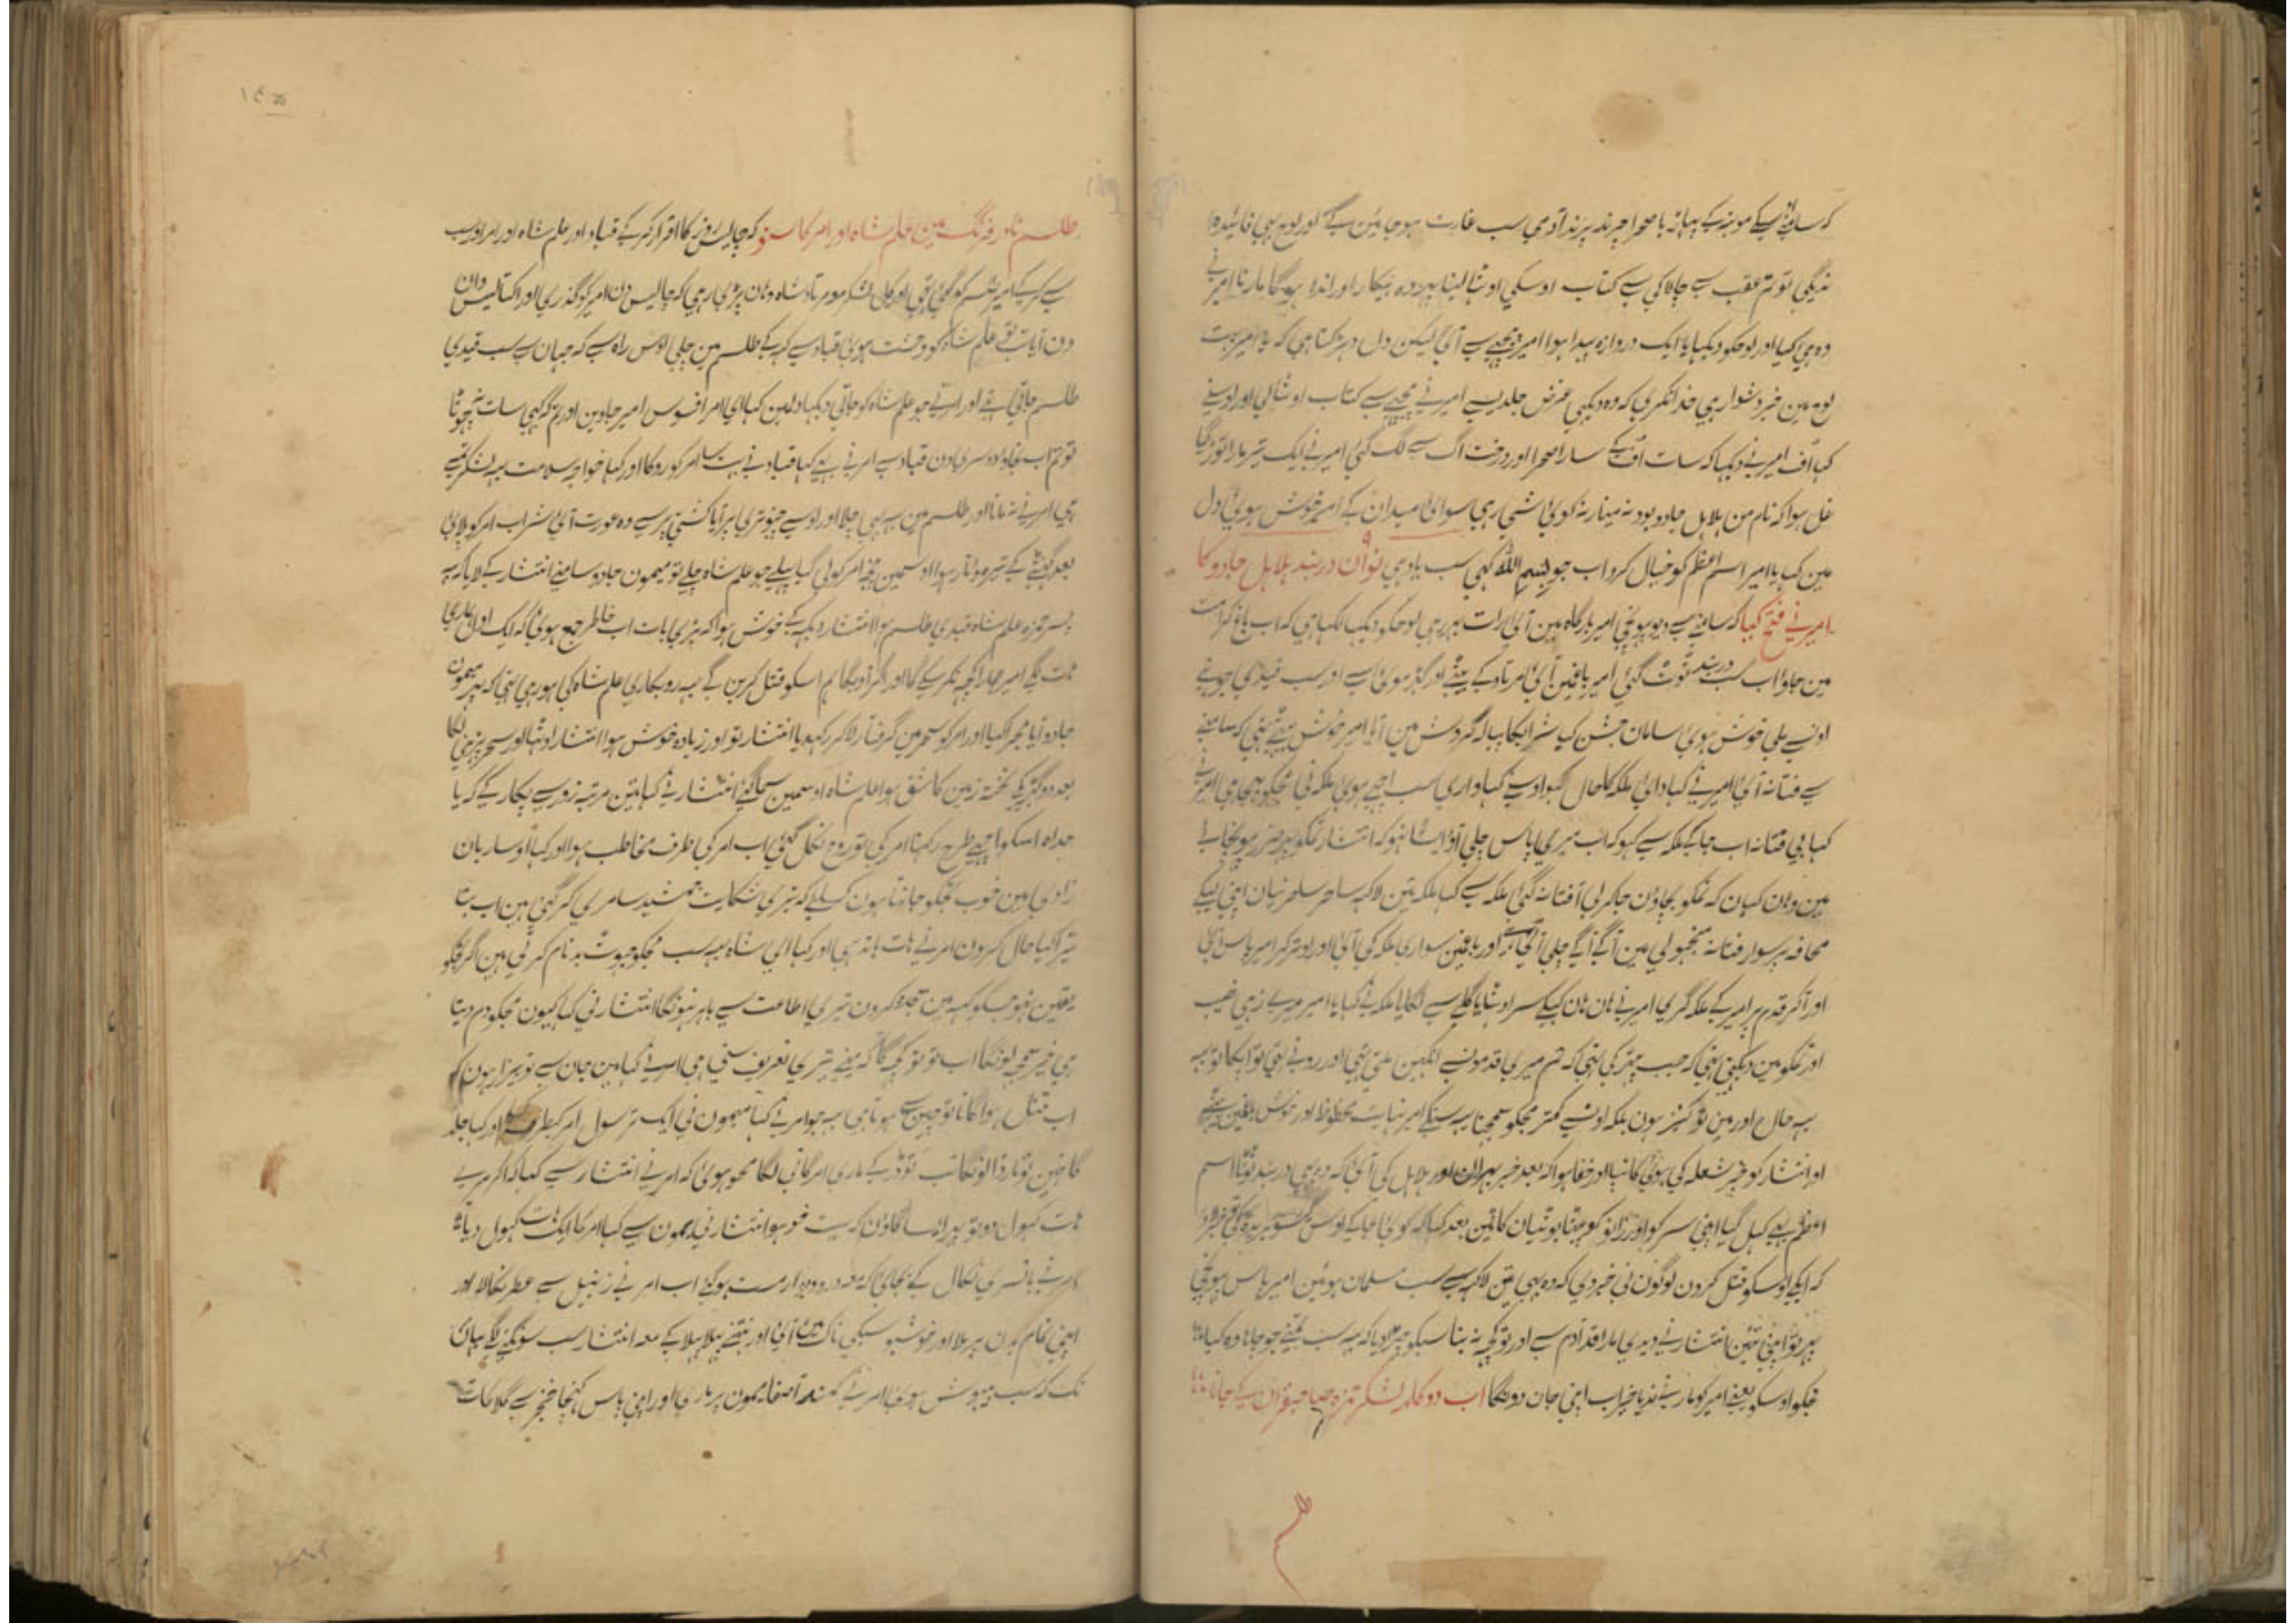 سب غارت ہوجاوین گے اور لوح بہی فائیدہ
ندیگی تو تم عقب سے چالاکی سے کتاب اوسکی اوٹھا لینا پہر وہ بیکار اور اندہا ہوگا مارنا امیر نے
وہی کیا اور لوحکو دیکہایا ایک دروازہ پیدا ہوا امیر پیچہے سے آئی لیکن دل دہڑکتا ہی کہ یا امیر
لوح مین خبر دشواری خدا نکری کہ وہ دیکہی غرض جلدیسے امیر نے پیچہے سے کتاب اوٹھالی اور اوسنے
کہا اُف امیر نے دیکہا کہ سات اُف کے سارا صحرا اور درخت اگ سے لگ گئی امیر نے ایک تیر مارا
غل ہوا کہ نام من ہلاہل جادو بود نہ مینار نہ کوئی شی رہی سوائی میدان کے امیر خوش ہوئی دل
مین کہا یا امیر اسم اعظم کو خیال کرو اب جو بسم اللہ کہی سب یاد ہی نوان دربند ہلاہل جادو کا
امیر نے فتح کیا کہ سامنے سے دیو پہونچی امیر بارگاہ مین آئی رات بہر رہی لوحکو دیکہا لکہا ہی کہ اب باغ
مین جاؤ اب سب دربند ٹوٹ گئی امیر باغمین آئی اور سب قیدی جو تہے
اونسے ملی خوش ہوئی سامان جشن کیا شرابکا پیالہ گردش مین آیا امیر خوش بیٹھے تہی کہ سامنے
سے فتانہ آئی امیر نے کہا دائی ملکہ کا حال کہو اوسنے کہا واری سب اچہے ہوئی ملکہ نی مجکو بہیجا ہی امیر نے
کہا بی فتانہ اب جاکے ملکہ سے کہو کہ اب میری پاس چلی آؤ ایسا نہو کہ انتشار تمکو پہر ضرر پہونچائے
مین وہان کہان کہ تمکو بچاؤن جاکر لی آ فتانہ گئی ملکہ سے کہا ملکہ تین لاکہہ ساحر ساحرنیان اپنی لیکے
محافہ پر سوار فتانہ منجہولی مین آگے آگے چلی آئی اور باغمین سواری ملکہ کی آئی اور اوترکر امیر پاس آئی
اور آکر قدم پر امیر کے ملکہ گری امیر نے ہان ہان کہکے سر اوٹھایا گلے سے لگایا ملکہ نے کہا یا امیر میرے زہی نصیب
اور تمکو مین دیکہتی تہی کہ جب پتہر کی تہی کہ تم میری قدمونسے انکہین ملتی تہی اور روتے تہی تو اپکا تو یہ
یہہ حال اور مین تو کنیز ہون بلکہ اونسے کمتر مجکو سمجہنا یہہ سنکے امیر نہایت محظوظ اور خوش باغمین بیٹھے
اور انتشار کو خبر شعلہ کی ہوئی کانپا اور خفا ہوا کہ بعد خبر ہلاہل کی آئی کہ دربند ٹوٹا اسم
اعظم بہی کہل گیا اپنی سر کو اور زانو کو پیٹتا
کہ ایکے اوسکو قتل کرون لوگون نی خبر دی کہ وہ بہی تین لاکہہ سے سب مسلمان ہوئین امیر پاس پہونچی
پہر تو اپنی تئین انتشار نے دے مارا قد آدم سے اور تو کچہ نہ بنا سبکو چہڑوادیا کہ یہہ سب کہنے جو جانا وہ کیا
خیکو اوسکو بہنے امیر کو مارنے ندیا خیر اب اپنی جان دونگا اب دو کلمہ لشکر حمزہ صاحبقران سے جانا
طلسم
طلسم نادر فرنگ مین علم شاہ اور امر کا سنو کہ چالیس روز کا اقرار کرکے قباد اور علم شاہ اور امر اور سب
سے کرکے امیر طلسم کو گئی تہی اور لشکر وہان پڑی رہی کہ چالیس دن امیر کو گذری اور اکتالیسوان
دن آیا تب تو علم شاہ کو وحشت ہوئی قباد سے کہہ کے طلسم مین چلی اوس راہ سے کہ جہان سے سب قیدی
طلسم جاتی تہے اور امر نے جو علم شاہ کو جاتی دیکہا دلمین کہا ای امر افسوس امیر جاوین اور تم کہ کبہی سات نہ چہوٹا
تو تم اب نجاؤ دوسری دن قباد سے امر نے بہی کہا قباد نے بہت سا امر کو روکا اور کہا خواجہ سلامت یہہ لشکر تمسے
ہی امر نے نمانا اور طلسم مین یہہ بہی چلا اور اوسے چبوتری پر آیا کشتی پر سے وہ عورت آئی شراب امر کو پلائی
بعد گہنٹے کے تیرہ و تار ہوا اوسمین پنجہ امر کو لی گیا پہلے جو علم شاہ چلے تو میمون جادو سامنے انتشار کے لایا کہ یہہ
پسر حمزہ علم شاہ قیدی طلسم ہوا انتشار دیکہہ کے خوش ہوا کہ بڑی بات اب خاطر جمع ہوئی کہ ایک اول ہماری
ہات لگے امیر ہمارا کچہ نکر سکے گا اور اگر آویگا ہم اسکو قتل کرین گے یہہ روبکاری علم شاہ کی ہورہی تہی کہ پہر میمون
جادو آیا مجرا کیا اور امر کو سحر مین گرفتار لاکر رکہدیا انتشار تو اور زیادہ خوش ہوا انتشار اوٹھا اور سحر پڑہنی لگا
بعد دو گہڑی کے تختہ زمین کا شق ہوا علم شاہ اوسمین سماگئے انتشار نے کہا تین مرتبہ زور سے پکار کے کہ یا
جداہ اسکو اچہے طرح رکہنا امر کی تو روح نکل گئی اب امر کی طرف مخاطب ہوا اور کہا او ساربان
زادی مین خوب تجکو جانتا ہون کسلیے کہ تیری شکایت جمشید سامری کر گئی ہین اب بتا
تیرا کیا حال کرون امر نے ہات باندہی اور کہا ای شاہ یہہ سب مجکو جہوٹ بدنام کرتی ہین اگر تمکو
یقین نہو جسکو کہہ مین سجدہ کرون تیری اطاعت سے باہر نہونگا انتشار نی کہا کیون مجکو دم دیتا
ہی خیر سمجہہ لونگا اب تو تو کچہ گا کہ مینے تیری تعریف سنی ہی امر نے کہا مین جان سے تو بیزار ہون کہ
اب قتل ہوا گانا تو چین سے ہوتا ہی یہہ جو امر نے کہا میمون نی ایک ترسول امر کیطرف اور کہا جلد
گا نہین تو مار ڈالونگا تب تو ڈر کے ماری امر گانی لگا محو ہوئی کہ امر نے انتشار سے کہا کہ اگر میرے
ہات کہول دو تو پہر ایسا گاؤن کہ بہت محو ہو انتشار نی میمون سے کہا امر کا ایک ہات کہول دیا
امر نے بانسری نکال کے بجائی کہ معہ در و دیوار مست ہوگئے اب امر نے زنبیل سے عطر نکالا اور
اپنی تمام بدن پر ملا اور خوشبو سبکی ناک مین آئی اور نتھنے پہلا پہلا کے معہ انتشار سب سونگہنے لگے یہان
تک کہ سب بیہوش ہوئی امر نے کمند آصفا میمون پر ماری اور اپنی پاس کہنچا خنجر سے گلا کاٹ